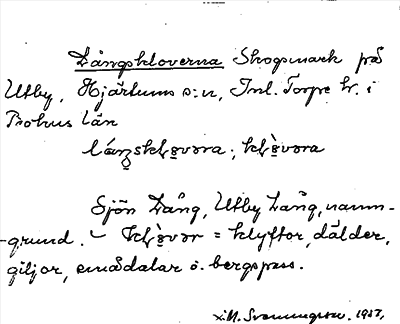 Långskloverna Skogsmark på
Utby, Hjärtums s:n, Inl. Torpe hr. i
Bohus län
lángskló̱vəra; kló̱vəra
Sjön Lång, Utby Lång, namn-
-grund. – klò̱vər = klyftor, dälder,
giljor, smådalar o. bergspass.